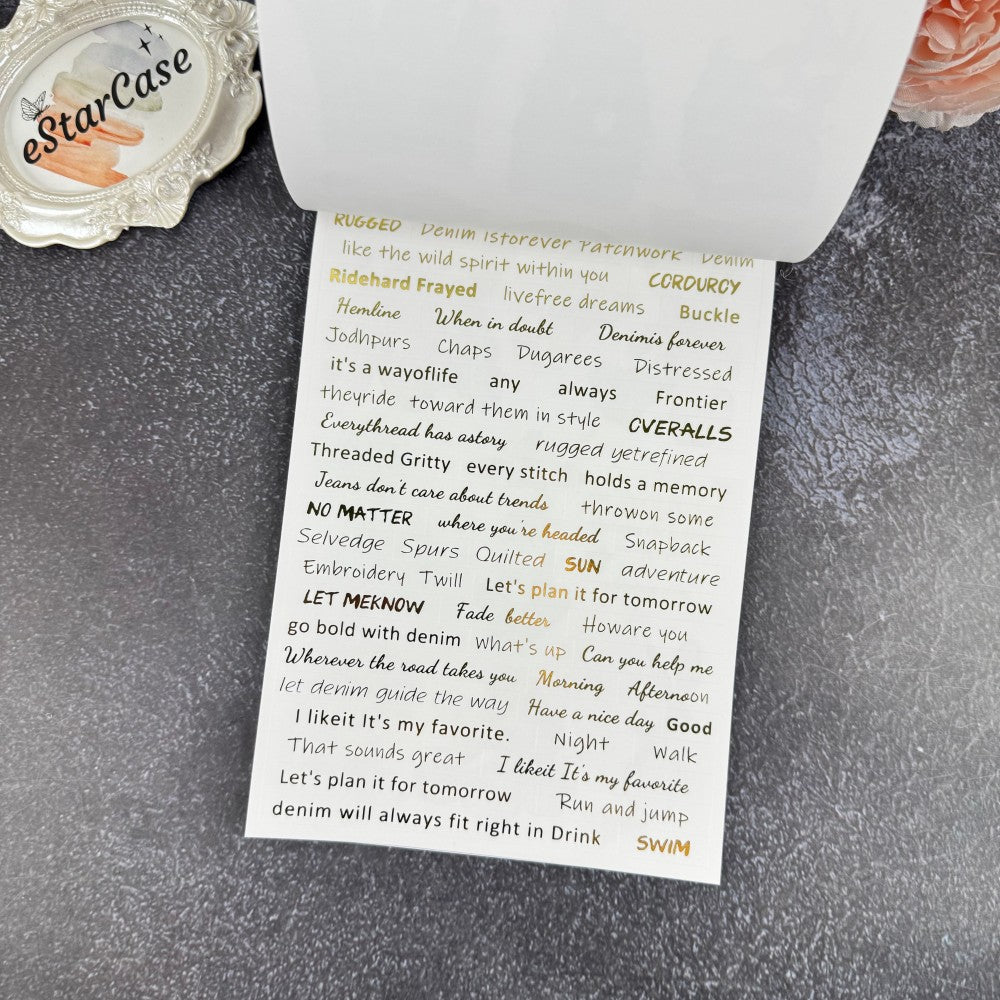 eStarCase
RUGGED Denim Isforever Patchwork Denim
like the wild spirit within you CORDUROY
Ridehard Frayed livefree dreams Buckle
Hemline When in doubt Denimis forever
Jodhpurs Chaps Dugarees Distressed
it's a wayoflife any always Frontier
theyride toward them in style OVERALLS
Everythread has astory rugged yetrefined
Threaded Gritty every stitch holds a memory
Jeans don't care about trends throwon some
NO MATTER where you're headed Snapback
Selvedge Spurs Quilted SUN adventure
Embroidery Twill Let's plan it for tomorrow
LET MEKNOW Fade better Howare you
go bold with denim What's up Can you help me
Wherever the road takes you Morning Afternoon
let denim guide the way Have a nice day Good
I likeit It's my favorite. Night Walk
That sounds great I likeit It's my favorite
Let's plan it for tomorrow Run and jump
denim will always fit right in Drink SWIM